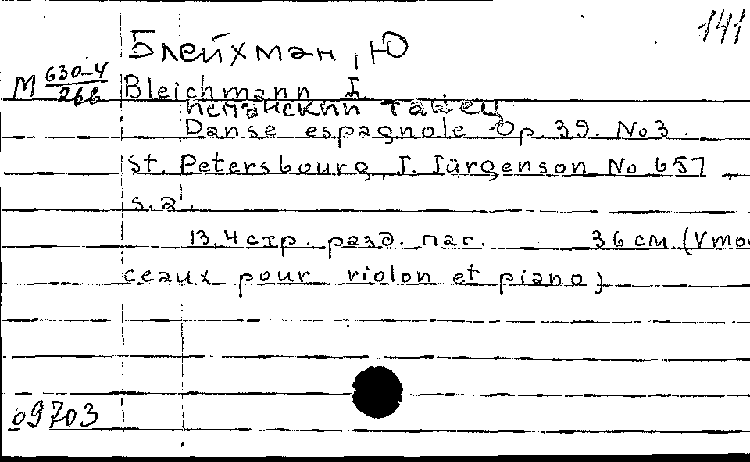 141
Блейхман, Ю
M 630-4/266
Bleichmann I.
испанский танец
Danse espagnole Op. 39. No 3.
St. Petersbourg, I. Jürgenson No 657,
s. a.
13, 4 стр. разд. паг. 36 см. (V mor
ceaux pour violon et piano)
09703